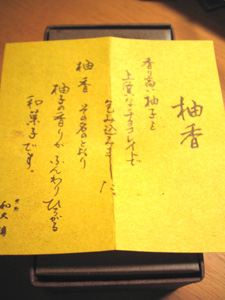 柚香
香り高い柚子を
上質なチョコレートで
包み込みました
柚香 その名の通り
柚子の香りがふんわりひろがる
和菓子です。